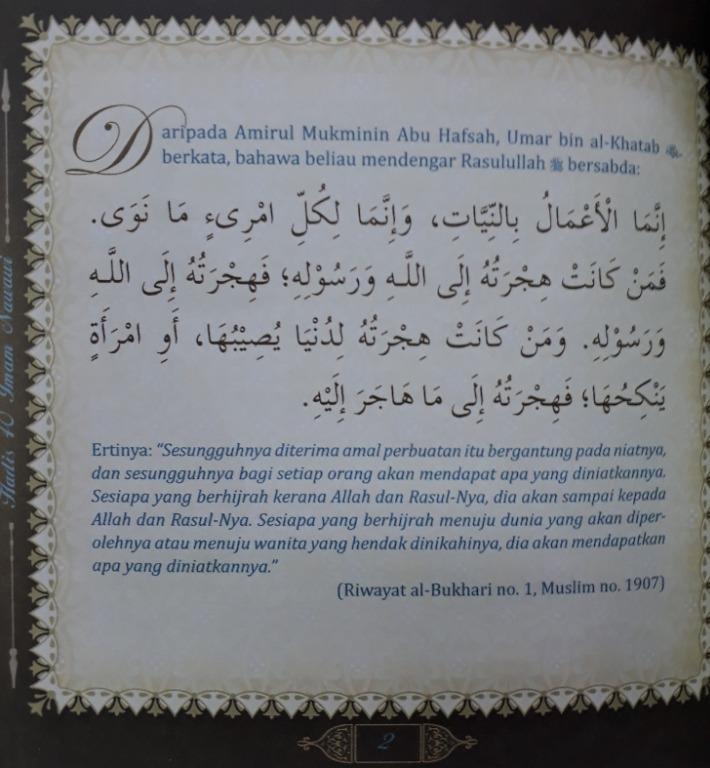 Hadis 40 Imam Nawawi
Daripada Amirul Mukminin Abu Hafsah, Umar bin al-Khatab
berkata, bahawa beliau mendengar Rasulullah ﷺ bersabda:
إِنَّمَا الْأَعْمَالُ بِالنِّيَّاتِ، وَإِنَّمَا لِكُلِّ امْرِىءٍ مَا نَوَى.
فَمَنْ كَانَتْ هِجْرَتُهُ إِلَى اللَّـهِ وَرَسُوْلِهِ؛ فَهِجْرَتُهُ إِلَى اللَّـهِ
وَرَسُوْلِهِ. وَمَنْ كَانَتْ هِجْرَتُهُ لِدُنْيَا يُصِيْبُهَا، أَوِ امْرَأَةٍ
يَنْكِحُهَا؛ فَهِجْرَتُهُ إِلَى مَا هَاجَرَ إِلَيْهِ.
Ertinya: “Sesungguhnya diterima amal perbuatan itu bergantung pada niatnya,
dan sesungguhnya bagi setiap orang akan mendapat apa yang diniatkannya.
Sesiapa yang berhijrah kerana Allah dan Rasul-Nya, dia akan sampai kepada
Allah dan Rasul-Nya. Sesiapa yang berhijrah menuju dunia yang akan diper-
olehnya atau menuju wanita yang hendak dinikahinya, dia akan mendapatkan
apa yang diniatkannya.”
(Riwayat al-Bukhari no. 1, Muslim no. 1907)
2